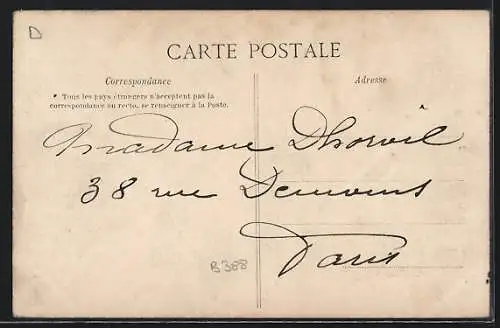 D
CARTE POSTALE
Correspondance
Adresse
* Tous les pays étrangers n'acceptent pas la
correspondance au recto, se renseigner à la Poste.
Madame
38 rue
Paris
B388